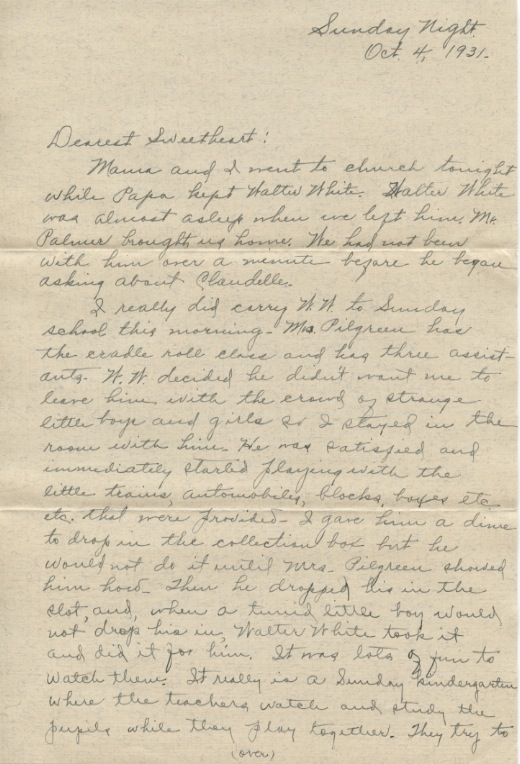 Sunday Night.
Oct. 4, 1931.
Dearest Sweetheart:
Mama and I went to church tonight
while Papa kept Walter White. Walter White
was almost asleep when we left him. Mr.
Palmer brought us home. We had not been
with him over a minute before he began
asking about Claudelle.
I really did carry W.W. to Sunday
school this morning. Mrs. Pilgreen has
the cradle roll class and has three assist-
ants. W.W. decided he didn't want me to
leave him with the crowd of strange
little boys and girls so I stayed in the
room with him. He was satisfied and
immediately started playing with the
little trains, automobiles, blocks, boxes etc.
etc. that were provided. I gave him a dime
to drop in the collection box but he
would not do it until Mrs. Pilgreen showed
him how. Then he dropped his in the
slot, and, when a timid little boy would
not drop his in, Walter White took it
and did it for him. It was lots of fun to
watch them. It really is a Sunday kindergarten
where the teachers watch and study the
pupils while they play together. They try to
(over)